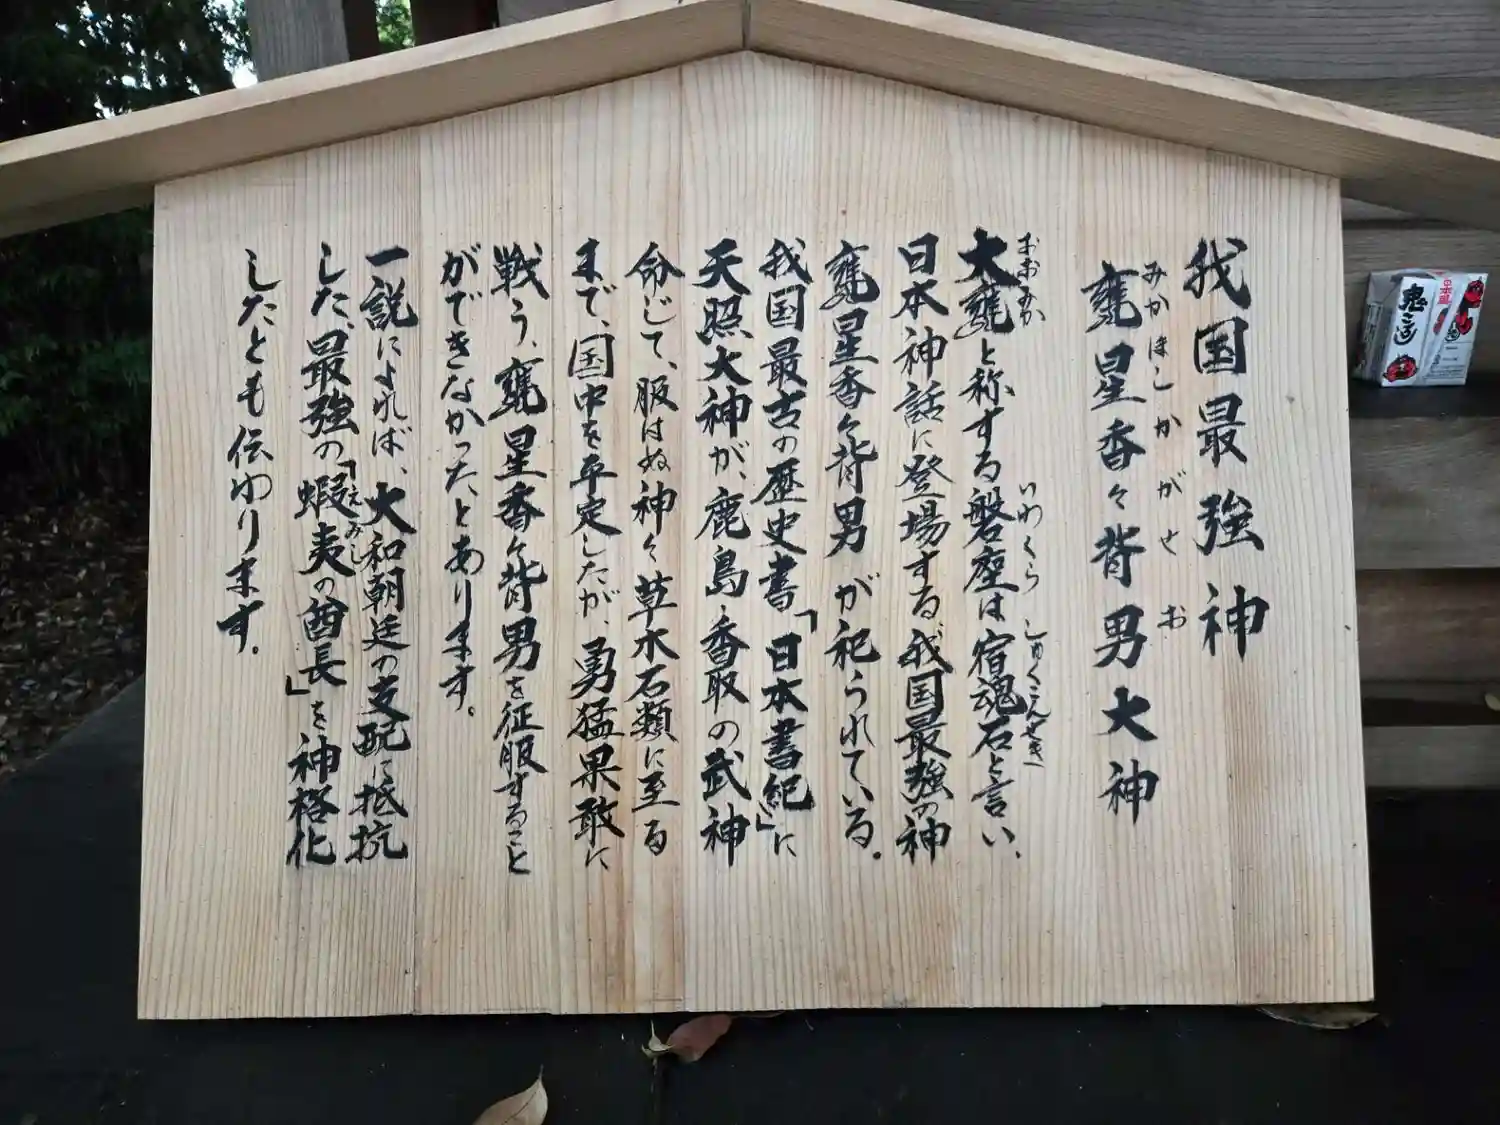 我国最強神
みかほしかがせお
甕星香々背男大神
おおみか
いわくら
しゅくこんせき
大甕と称する磐座は宿魂石と言い、
日本神話に登場する、我国最強の神
甕星香々背男が祀られている。
我国最古の歴史書「日本書紀」に
天照大神が、鹿島・香取の武神
命じて、服はぬ神々草木石類に至る
まで、国中を平定したが、勇猛果敢に
戦う、甕星香々背男を征服すること
ができなかった、とあります。
一説によれば、大和朝廷の支配に抵抗
した、最強の「蝦夷の酋長」を神格化
えみし
したとも伝わります。
日本盛
鬼ころし